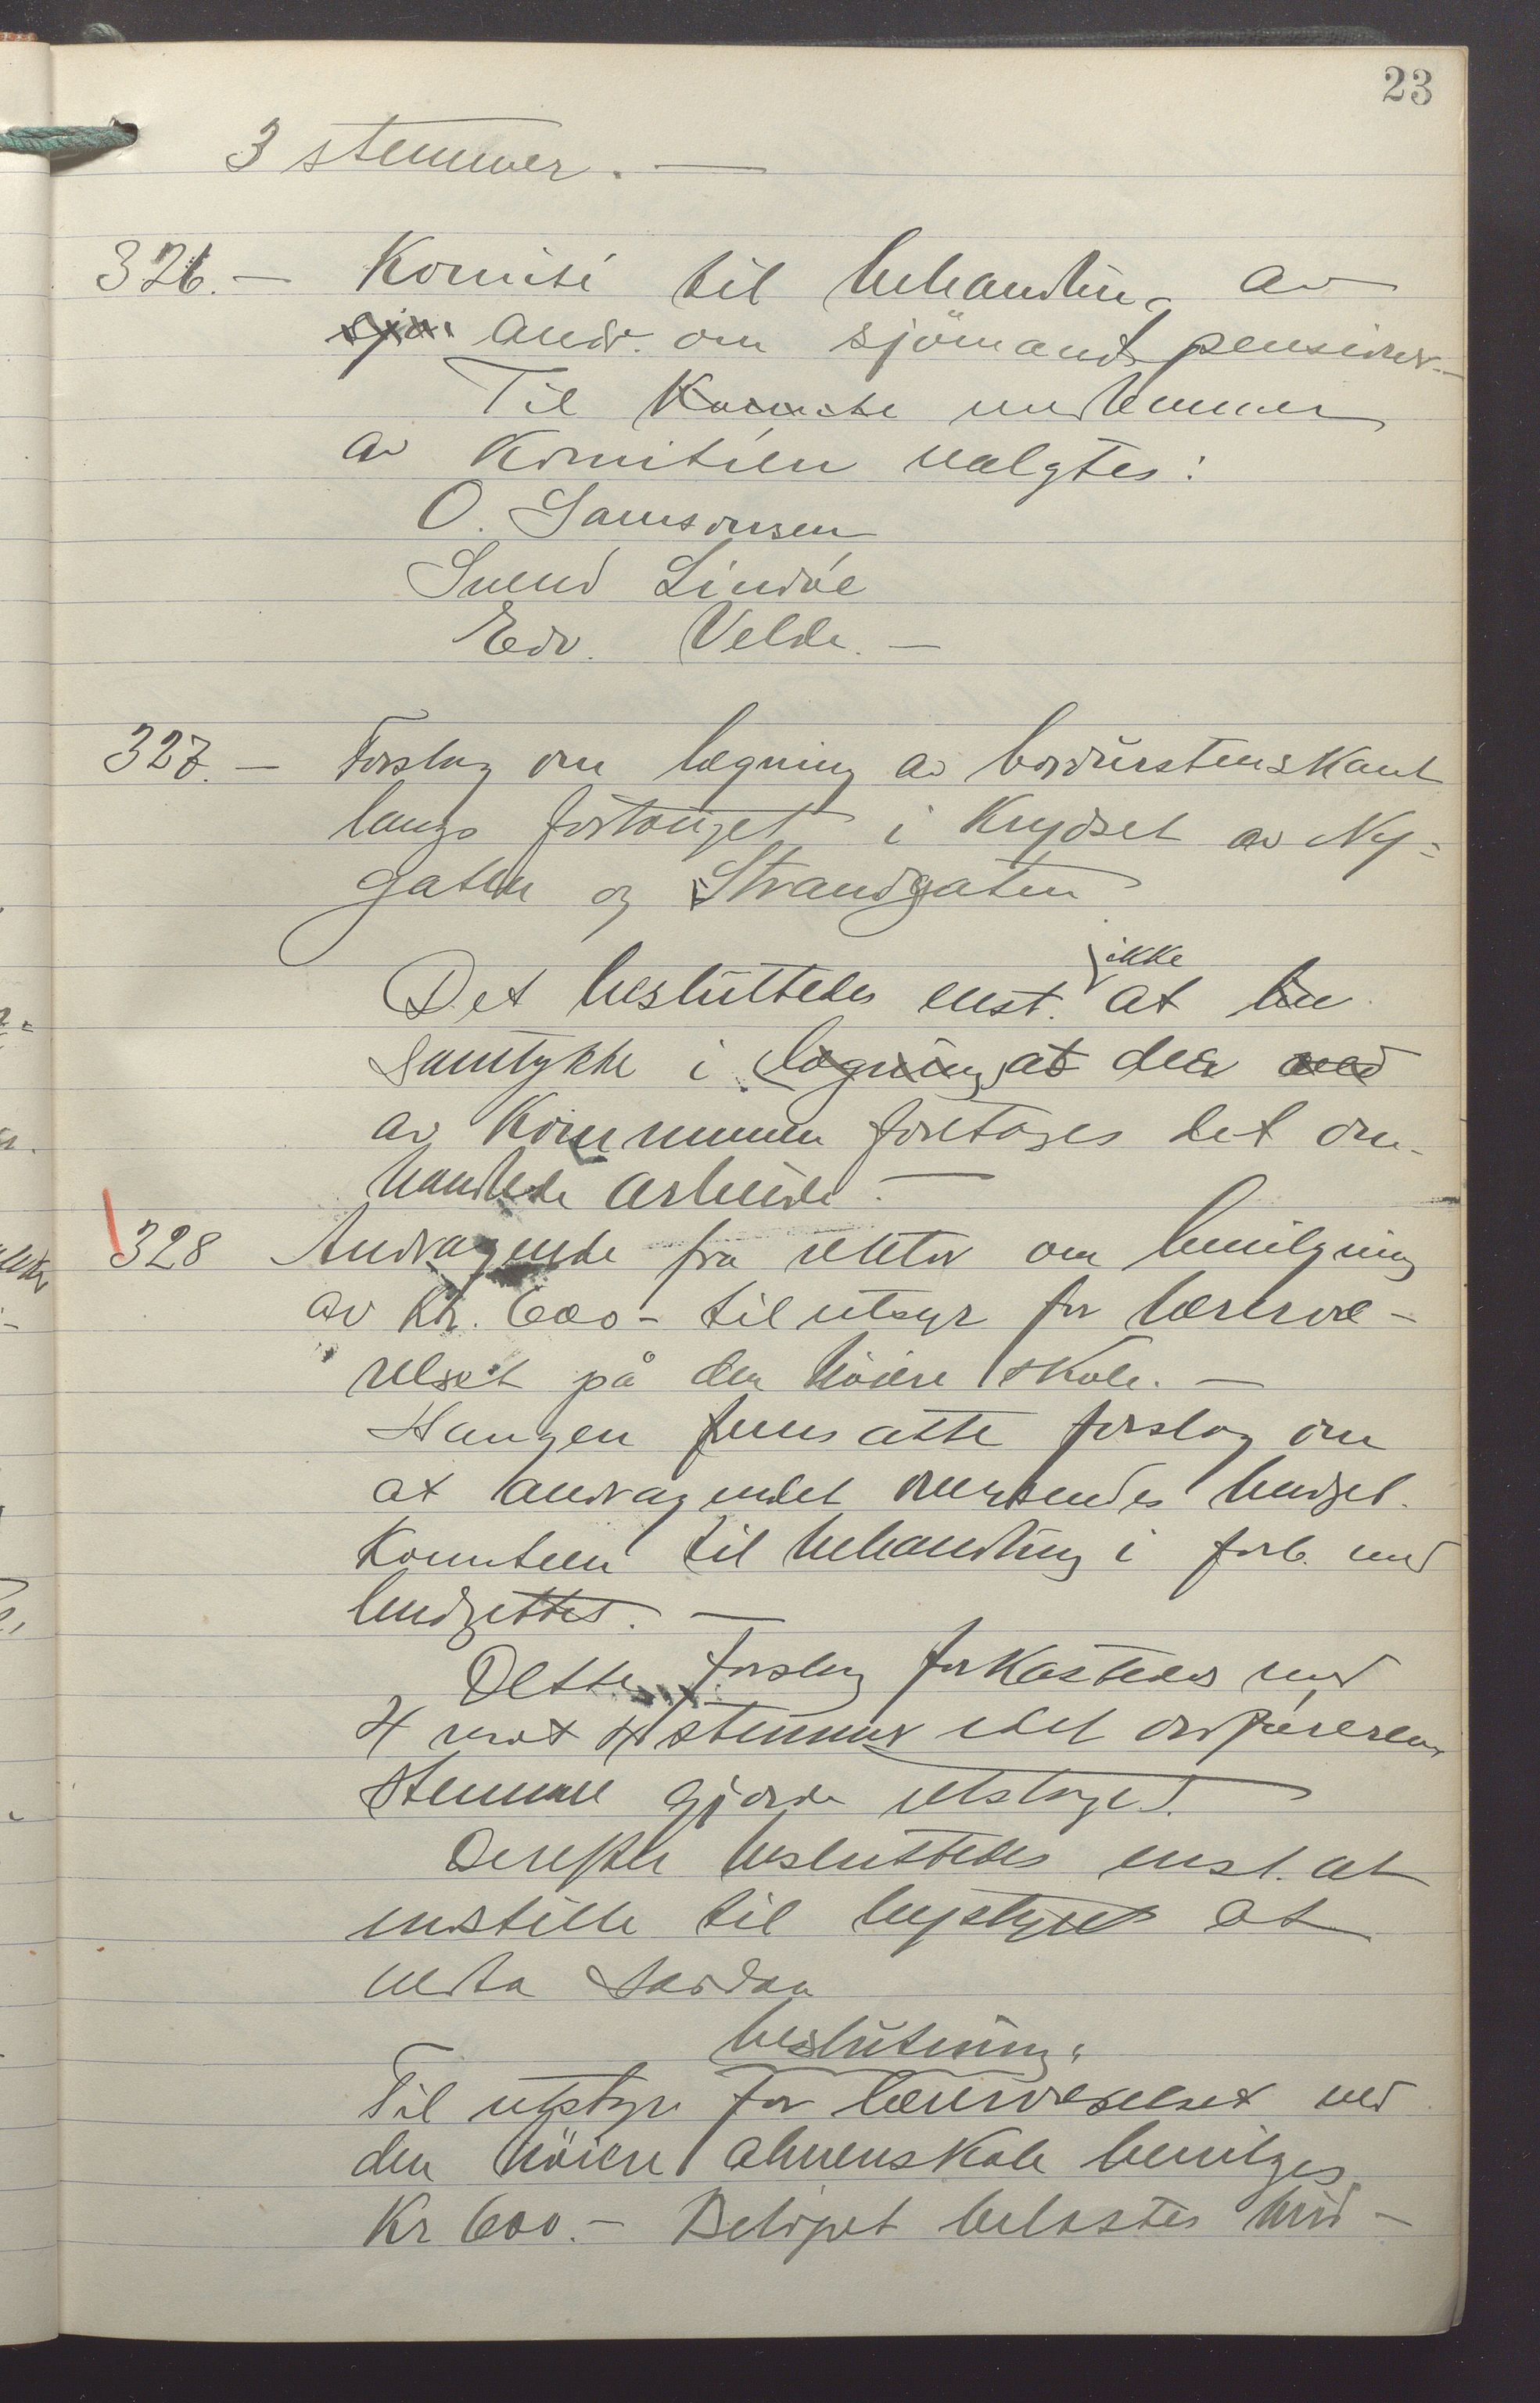 23
3 stemmer. —
326. — Komité til behandling av
sjø andr. om sjömandspensioner. —
Til Komite medlemmer
av Komitéen valgtes:
O. Samsonsen
Svend Lindøe
Edv. Velde. —
327. — Forslag om lægning av bordürstenskant
langs fortauget i Krydset av Ny-
gaten og Strandgaten
Det besluttedes enst. ikke at
samtykke i lægning at der med
av Kommunen foretages det om-
handlede arbeide. —
328 Andragende fra rektor om bevilgning
av Kr. 600 - til utstyr for lærervæ-
relset på den höiere skole. —
Haugen fremsatte forslag om
at andragendet oversendes budget.
Komiteen til behandling i forb. med
budgettet. —
Dette forslag forkastedes med
4 mot 4 stemmer idet ordförerens
stemme gjorde utslaget.
Derefter besluttedes enst. at
indstille til bystyret at
ta saadan
beslutning:
Til utstyr for lærerværelset ved
den höiere almenskole bevilges
Kr 600. - Belöpet belastes bud-